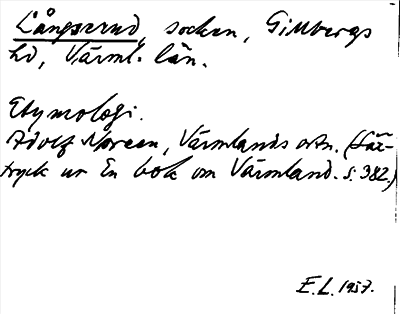 Långserud, socken, Gillbergs
hd, Värml. län.
Etymologi.
Adolf Noreen, Värmlands ortn. (Sär-
tryck ur En bok om Värmland. s. 382.)
E.L. 1957.